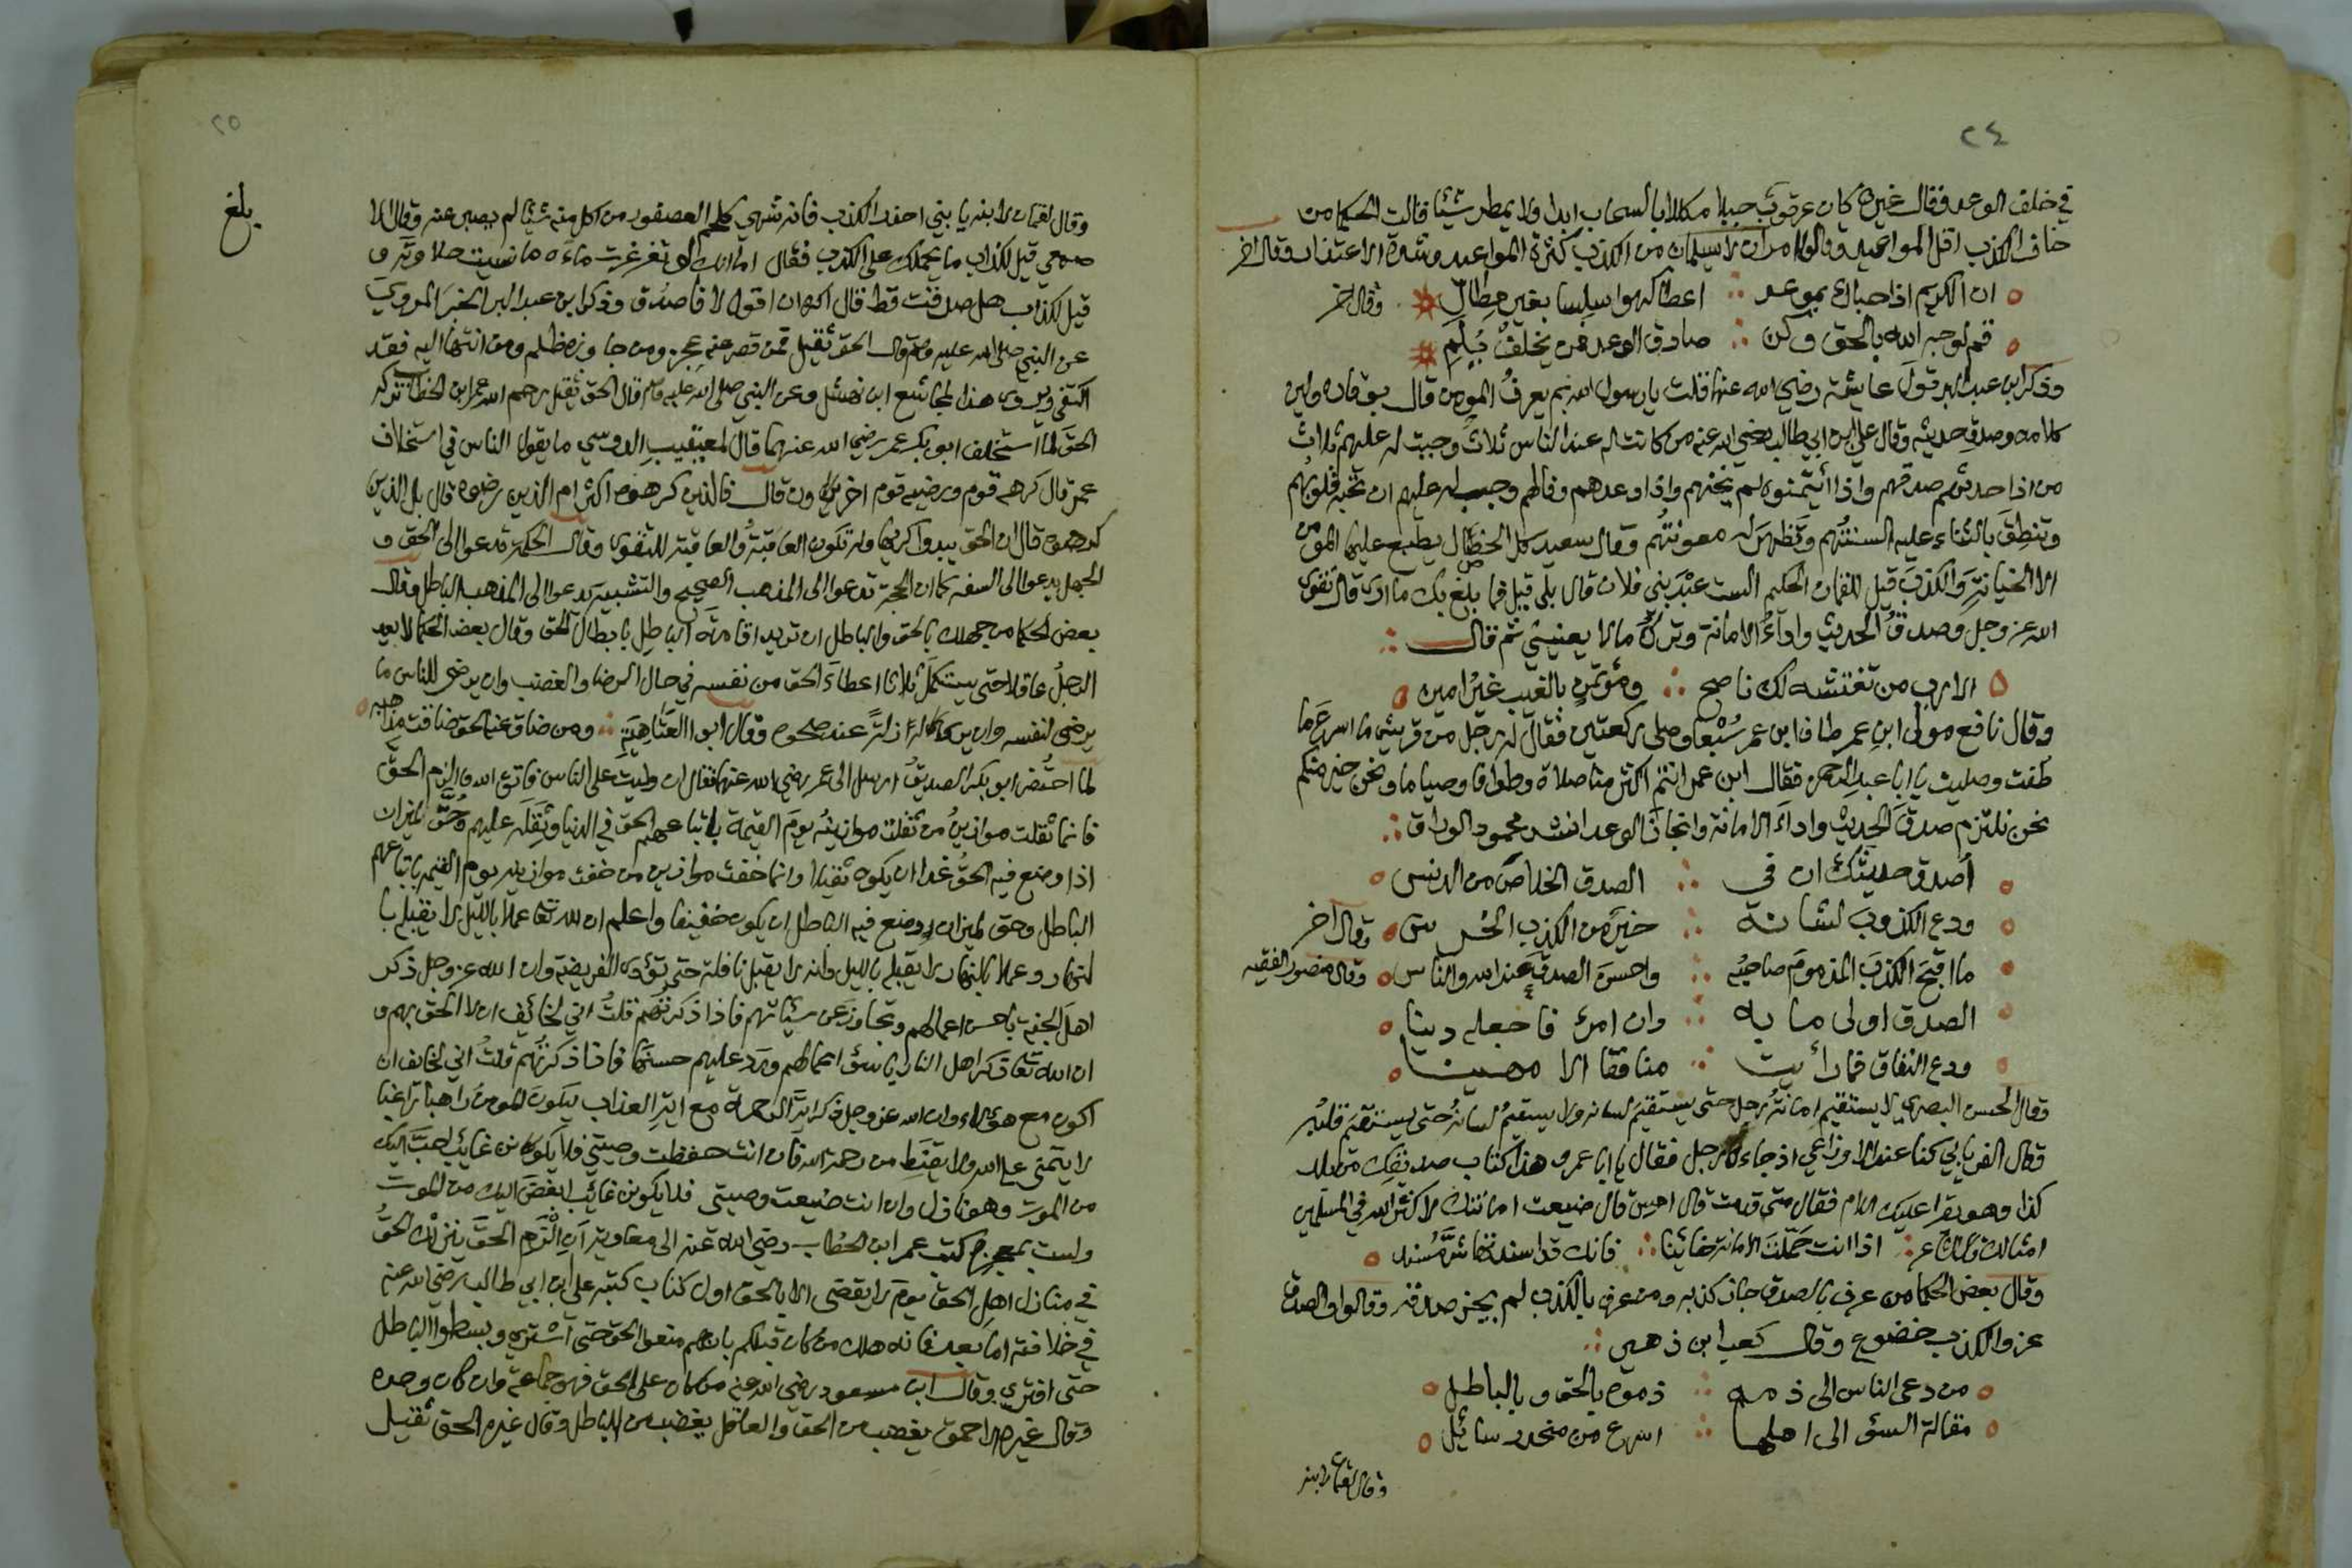 ٢٤
في خلف الوعد فقال غيره كان عرقوب جبلا مكللا بالسحاب ابدا ولا يمطر شيئا قالت الحكما من
خاف الكذب اقل المواعيد وقالوا امران لا يسلمان من الكذب كثرة المواعيد وشدة الاعتذار وقال اخر
ان الكريم اذا حباك بموعد ∴ اعطاكه سلسا بغير مطال وقال اخر
قم لوجه الله بالحق وكن ∴ صادق الوعد فمن يخلف يلم
وذكر ابن عبد البر قول عايشة رضي الله عنها قلت يا رسول الله بم يعرف المومن قال بوقاره ولين
كلامه وصدق حديثه وقال علي ابن ابي طالب رضي الله عنه من كانت له عند الناس ثلاث وجبت له عليهم ثلاث
من اذا حدثهم صدقهم واذا ائتمنوه لم يخنهم واذا وعدهم وفا لهم وجب له عليهم ان تحبه قلوبهم
وتنطق بالثناء عليه السنتهم وتظهر له معونتهم وقال سعيد كل الخصال يطبع عليها المؤمن
الا الخيانة والكذب قيل للقمان الحكيم الست عبد بني فلان قال بلى قيل فما بلغ بك ما ارى قال تقوى
الله عز وجل وصدق الحديث واداء الامانة وترك ما لا يعنيني ثم قال ∴
الا رب من تغتشه لك ناصح ∴ ومؤتمن بالغيب غير امين
وقال نافع مولى ابن عمر طاف ابن عمر سبعا وصلى ركعتين فقال له رجل من قريش ما اسرع ما
طفت وصليت يا ابا عبد الرحمن فقال ابن عمر انتم اكثر منا صلاة وطوافا وصياما ونحن خير منكم
نحن نلتزم صدق الحديث واداء الامانة وانجاز الوعد انشد محمود الوراق ∴
أصدق حديثك ان في ∴ الصدق الخلاص من الدنس
ودع الكذوب لشانه ∴ خير من الكذب الخرس وقال اخر
ما اقبح الكذب المذموم صاحبه ∴ واحسن الصدق عند الله والناس وقال منصور الفقيه
الصدق اولى ما به ∴ دان امرئ فاجعله دينا
ودع النفاق فما رأيت ∴ منافقا الا مهينا
وقال الحسن البصري لا يستقيم امانة رجل حتى يستقيم لسانه ولا يستقيم لسانه حتى يستقيم قلبه
وقال الفريابي كنا عند الاوزاعي اذ جاءه رجل فقال يا ابا عمرو هذا كتاب صديقك من بلد
كذا وهو يقرا عليك السلام فقال متى قدمت قال امس قال ضيعت امانتك لا كثر الله في المسلمين
امثالك وقال الشاعر ∴ اذا انت حملت الامانة خائنا ∴ فانك قد اسندتها شر مسند
وقال بعض الحكما من عرف بالصدق جاز كذبه ومن عرف بالكذب لم يجز صدقه وقالوا الصدق
عز والكذب خضوع وقال كعب ابن زهير ∴
من دعى الناس الى ذمه ∴ ذموه بالحق وبالباطل
مقالة السوء الى اهلها ∴ اسرع من منحدر سائل
وقال لقمان لابنه
٢٥
بلغ
وقال لقمان لابنه يا بني احذر الكذب فانه شهي كلحم العصفور من اكل منه شيئا لم يصبر عنه وقال الا
صمعي قيل لكذاب ما يحملك على الكذب فقال اما انك لو تغرغرت ماءه ما نسيت حلاوته و
قيل لكذاب هل صدقت قط قال اكره ان اقول لا فاصدق وذكر ابن عبد البر الخبر المروي
عن النبي صلى الله عليه وسلم قال الحق ثقيل فمن قصر عنه عجز ومن جاوزه ظلم ومن انتها اليه فقد
اكتفى ويروى هذا لمجاشع ابن نهشل وعن النبي صلى الله عليه وسلم قال الحق ثقيل رحم الله عمر ابن الخطاب تركه
الحق لما استخلف ابو بكر عمر رضي الله عنهما قال لمعيقيب الدوسي ما يقول الناس في استخلاف
عمر قال كرهه قوم ورضيه قوم اخرون قال فالذين كرهوه اكثر ام الذين رضوه قال بل الذين
كرهوه قال ان الحق يبدوا كريها وله تكون العاقبة والعاقبة للتقوى وقال الحكمة تدعوا الى الحق و
الجهل يدعوا الى السفه كما ان الحجة تدعوا الى المذهب الصحيح والتشبيه يدعوا الى المذهب الباطل وقال
بعض الحكما من جهلك بالحق والباطل ان تريد اقامة الباطل بابطال الحق وقال بعض الحكما لا يعد
الرجل عاقلا حتى يستكمل ثلاثا اعطاء الحق من نفسه في حال الرضا والغضب وان يرضى للناس ما
يرضى لنفسه وان لا يرى له زلة عند صحوه وقال ابو العتاهية ∴ ومن ضاق عنه الحق ضاقت مذاهبه
لما احتضر ابو بكر الصديق ارسل الى عمر رضي الله عنهما فقال ان وليت على الناس فاتق الله والزم الحق
فانما ثقلت موازين من ثقلت موازينه يوم القيمة باتباعهم الحق في الدنيا وثقله عليهم وحق لميزان
اذا وضع فيه الحق غدا ان يكون ثقيلا وانما خفت موازين من خفت موازينه يوم القيمه باتباعهم
الباطل وحق لميزان وضع فيه الباطل ان يكون خفيفا واعلم ان لله تعا عملا بالليل لا يقبله با
لنهار وعملا بالنهار لا يقبله بالليل وانه لا يقبل نافلة حتى تؤدى الفريضة وان الله عز وجل ذكر
اهل الجنة باحسن اعمالهم وتجاوز عن سيئاتهم فاذا ذكرتهم قلت اني لخائف ان لا الحق بهم و
ان الله تعا ذكر اهل النار باسوء اعمالهم ورد عليهم حسنها فاذا ذكرتهم قلت اني لخايف ان
اكون مع هؤلاء وان الله عز وجل ذكر اية الرحمة مع اية العذاب ليكون المومن راهبا راغبا
لا يتمنى على الله ولا يقنط من رحمة الله فان انت حفظت وصيتي فلا يكونن غايب احب اليك
من الموت وهو نازل وان انت ضيعت وصيتي فلا يكونن غائب ابغض اليك من الموت
ولست بمعجزه كتب عمر ابن الخطاب رضي الله عنه الى معاوية أن الزم الحق ينزلك الحق
في منازل اهل الحق يوم لا يقضى الا بالحق اول كتاب كتبه علي ابن ابي طالب رضي الله عنه
في خلافته اما بعد فانه هلك من كان قبلكم بانهم منعوا الحق حتى اشتري وبسطوا الباطل
حتى افتري وقال ابن مسعود رضي الله عنه من كان على الحق فهو جماعة وان كان وحده
وقال غيره الاحمق يغضب من الحق والعاقل يغضب من الباطل وقال غيره الحق ثقيل